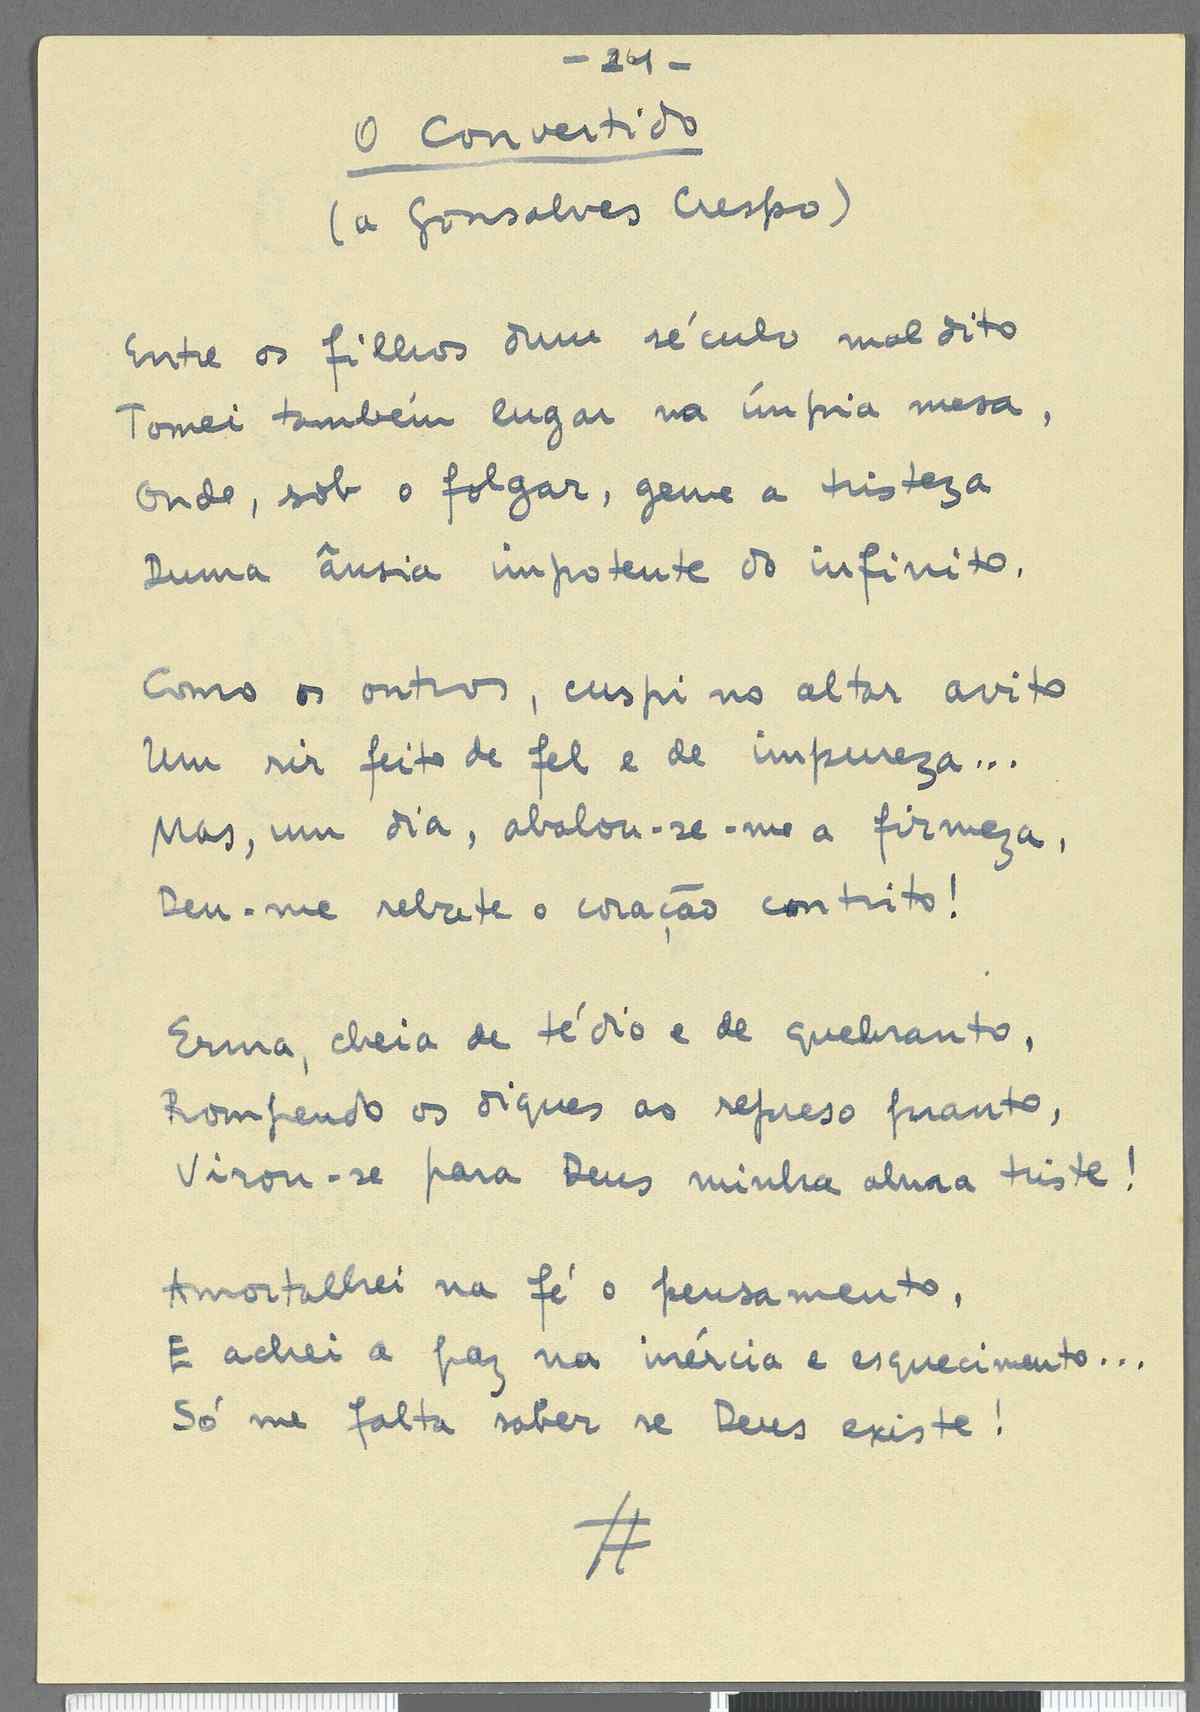 - 24 -
O Convertido
(a Gonsalves Crespo)
Entre os filhos dum século maldito
Tomei também lugar na ímpia mesa,
Onde, sob o folgar, geme a tristeza
Duma ânsia impotente do infinito.
Como os outros, cuspi no altar avito
Um rir feito de fel e de impureza...
Mas, um dia, abalou-se-me a firmeza,
Deu-me rebate o coração contrito!
Erma, cheia de tédio e de quebranto,
Rompendo os diques ao represo pranto,
Virou-se para Deus minha alma triste!
Amortalhei na fé o pensamento,
E achei a paz na inércia e esquecimento...
Só me falta saber se Deus existe!
#